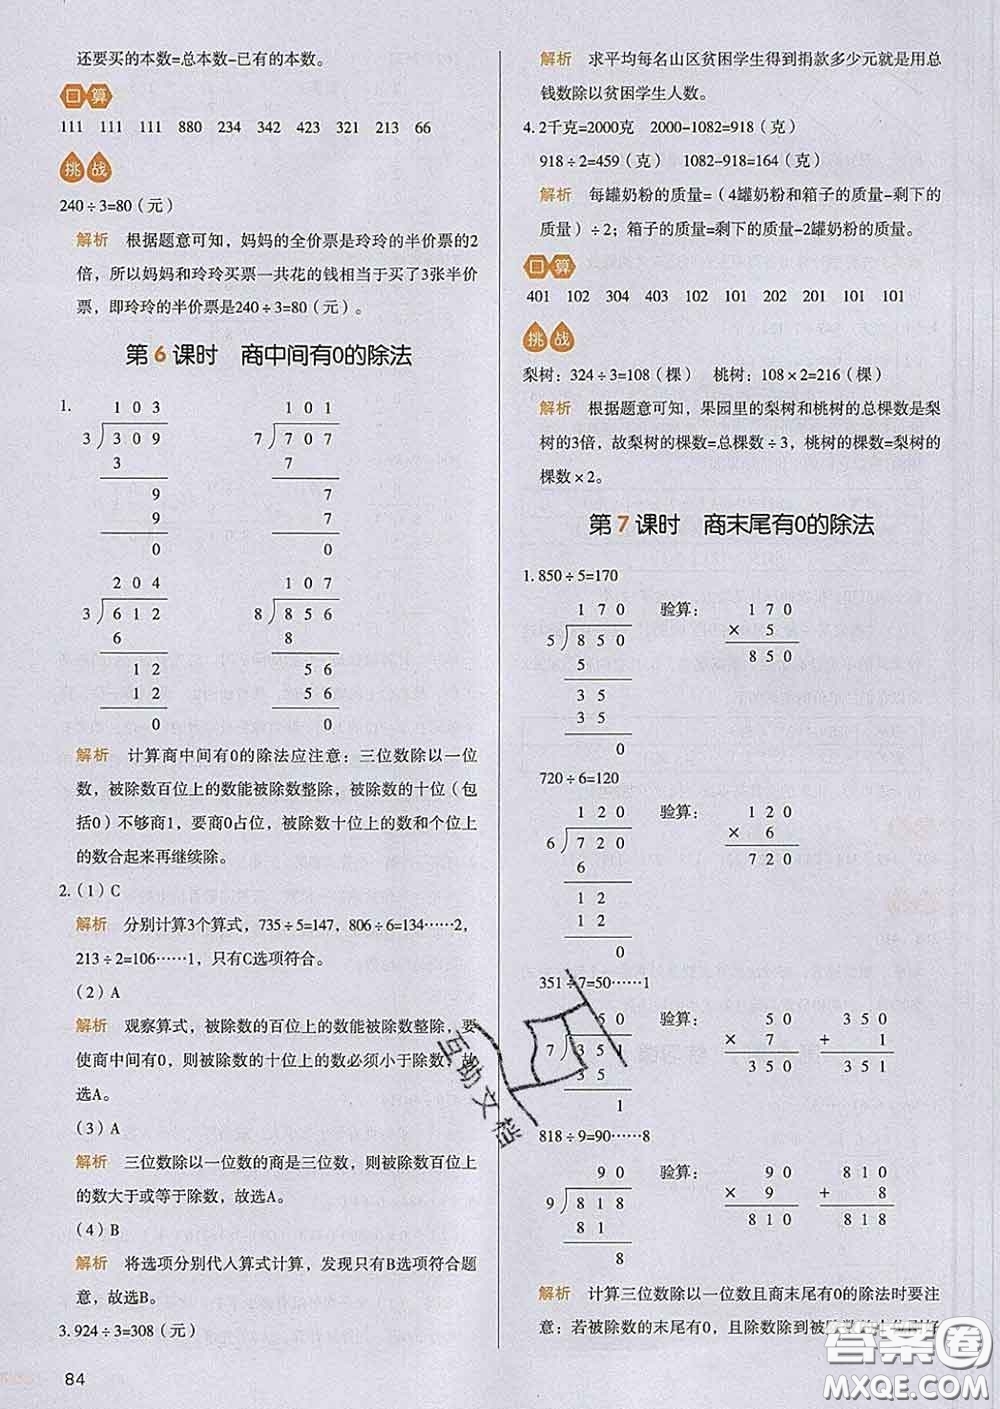 还要买的本数=总本数-已有的本数。
口算
111 111 111 880 234 342 423 321 213 66
挑战
240÷3=80（元）
解析 根据题意可知，妈妈的全价票是玲玲的半价票的2
倍，所以妈妈和玲玲买票一共花的钱相当于买了3张半价
票，即玲玲的半价票是240÷3=80（元）。
第6课时 商中间有0的除法
1.
1 0 3
3 3 0 9
3
9
9
0
1 0 1
7 7 0 7
7
7
7
0
2 0 4
3 6 1 2
6
1 2
1 2
0
1 0 7
8 8 5 6
8
5 6
5 6
0
解析 计算商中间有0的除法应注意：三位数除以一位
数，被除数百位上的数能被除数整除，被除数的十位（包
括0）不够商1，要商0占位，被除数十位上的数和个位上
的数合起来再继续除。
2.（1）C
解析 分别计算3个算式，735÷5=147，806÷6=134……2，
213÷2=106……1，只有C选项符合。
（2）A
解析 观察算式，被除数的百位上的数能被除数整除，要
使商中间有0，则被除数的十位上的数必须小于除数，故
选A。
（3）A
解析 三位数除以一位数的商是三位数，则被除数百位上
的数大于或等于除数，故选A。
（4）B
解析 将选项分别代入算式计算，发现只有B选项符合题
意，故选B。
3.924÷3=308（元）
84
解析 求平均每名山区贫困学生得到捐款多少元就用总
钱数除以贫困学生人数。
4.2千克=2000克 2000-1082=918（克）
918÷2=459（克） 1082-918=164（克）
解析 每罐奶粉的质量=（4罐奶粉和箱子的质量-剩下的
质量）÷2；箱子的质量=剩下的质量-2罐奶粉的质量。
口算
401 102 304 403 102 101 202 201 101 101
挑战
梨树：324÷3=108（棵） 桃树：108×2=216（棵）
解析 根据题意可知，果园里的梨树和桃树的总棵数是梨
树的3倍，故梨树的棵数=总棵数÷3，桃树的棵数=梨树的
棵数×2。
第7课时 商末尾有0的除法
1.850÷5=170
1 7 0
5 8 5 0
5
3 5
3 5
0
验算： 1 7 0
× 5
8 5 0
720÷6=120
1 2 0
6 7 2 0
6
1 2
1 2
0
验算： 1 2 0
× 6
7 2 0
351÷7=50……1
5 0
7 3 5 1
3 5
1
验算： 5 0
× 7
3 5 0
3 5 0
+ 1
3 5 1
818÷9=90……8
9 0
9 8 1 8
8 1
8
验算： 9 0
× 9
8 1 0
8 1 0
+ 8
8 1 8
解析 计算三位数除以一位数且商末尾有0的除法时要注
意：若被除数的末尾有0，且除数除到被除数的十位刚好
互助文档
答案圈
MXQE.COM